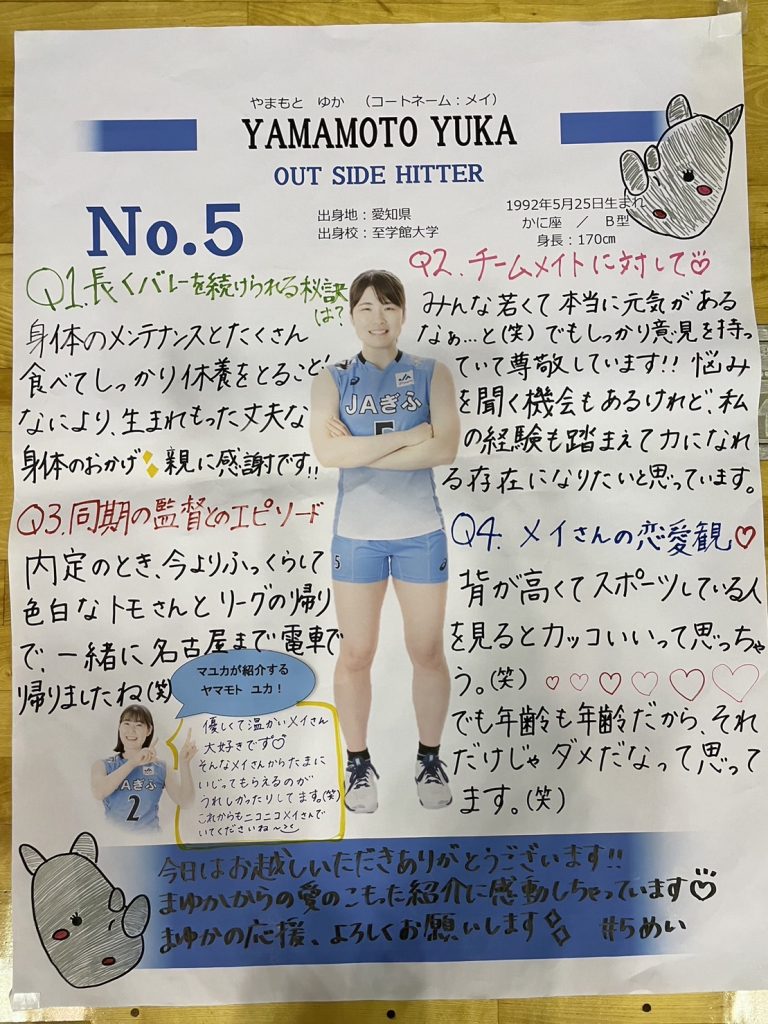 やまもと ゆか （コートネーム：メイ）
YAMAMOTO YUKA
OUT SIDE HITTER
No.5
出身地：愛知県
出身校：至学館大学
1992年5月25日生まれ
かに座 ／ B型
身長：170㎝
Q1.長くバレーを続けられる秘訣
は？
身体のメンテナンスとたくさん
食べてしっかり休養をとること!
なにより、生まれもった丈夫な
身体のおかげ 親に感謝です!!
Q2.チームメイトに対して♡
みんな若くて本当に元気がある
なぁ…と(笑)でもしっかり意見を持っ
ていて尊敬しています!! 悩み
を聞く機会もあるけれど、私
の経験も踏まえて力になれ
る存在になりたいと思っています。
Q3.同期の監督とのエピソード
内定のとき、今よりふっくらして
色白なトモさんとリーグの帰り
で、一緒に名古屋まで電車で
帰りましたね(笑)
Q4. メイさんの恋愛観♡
背が高くてスポーツしている人
を見るとカッコいいって思っちゃ
う。(笑) ♡♡♡♡♡♡
でも年齢も年齢だから、それ
だけじゃダメだなって思って
ます。(笑)
JAぎふ
5
5
マユカが紹介する
ヤマモト ユカ！
優しくて温かいメイさん
大好きです♡
そんなメイさんからたまに
いじってもらえるのが
うれしかったりしてます。(笑)
これからもニコニコメイさんで
いてくださいね〜
JAぎふ
2
今日はお越しいただきありがとうございます!!
まゆかからの愛のこもった紹介に感動しちゃっています♡
まゆかの応援、よろしくお願いします #らめい